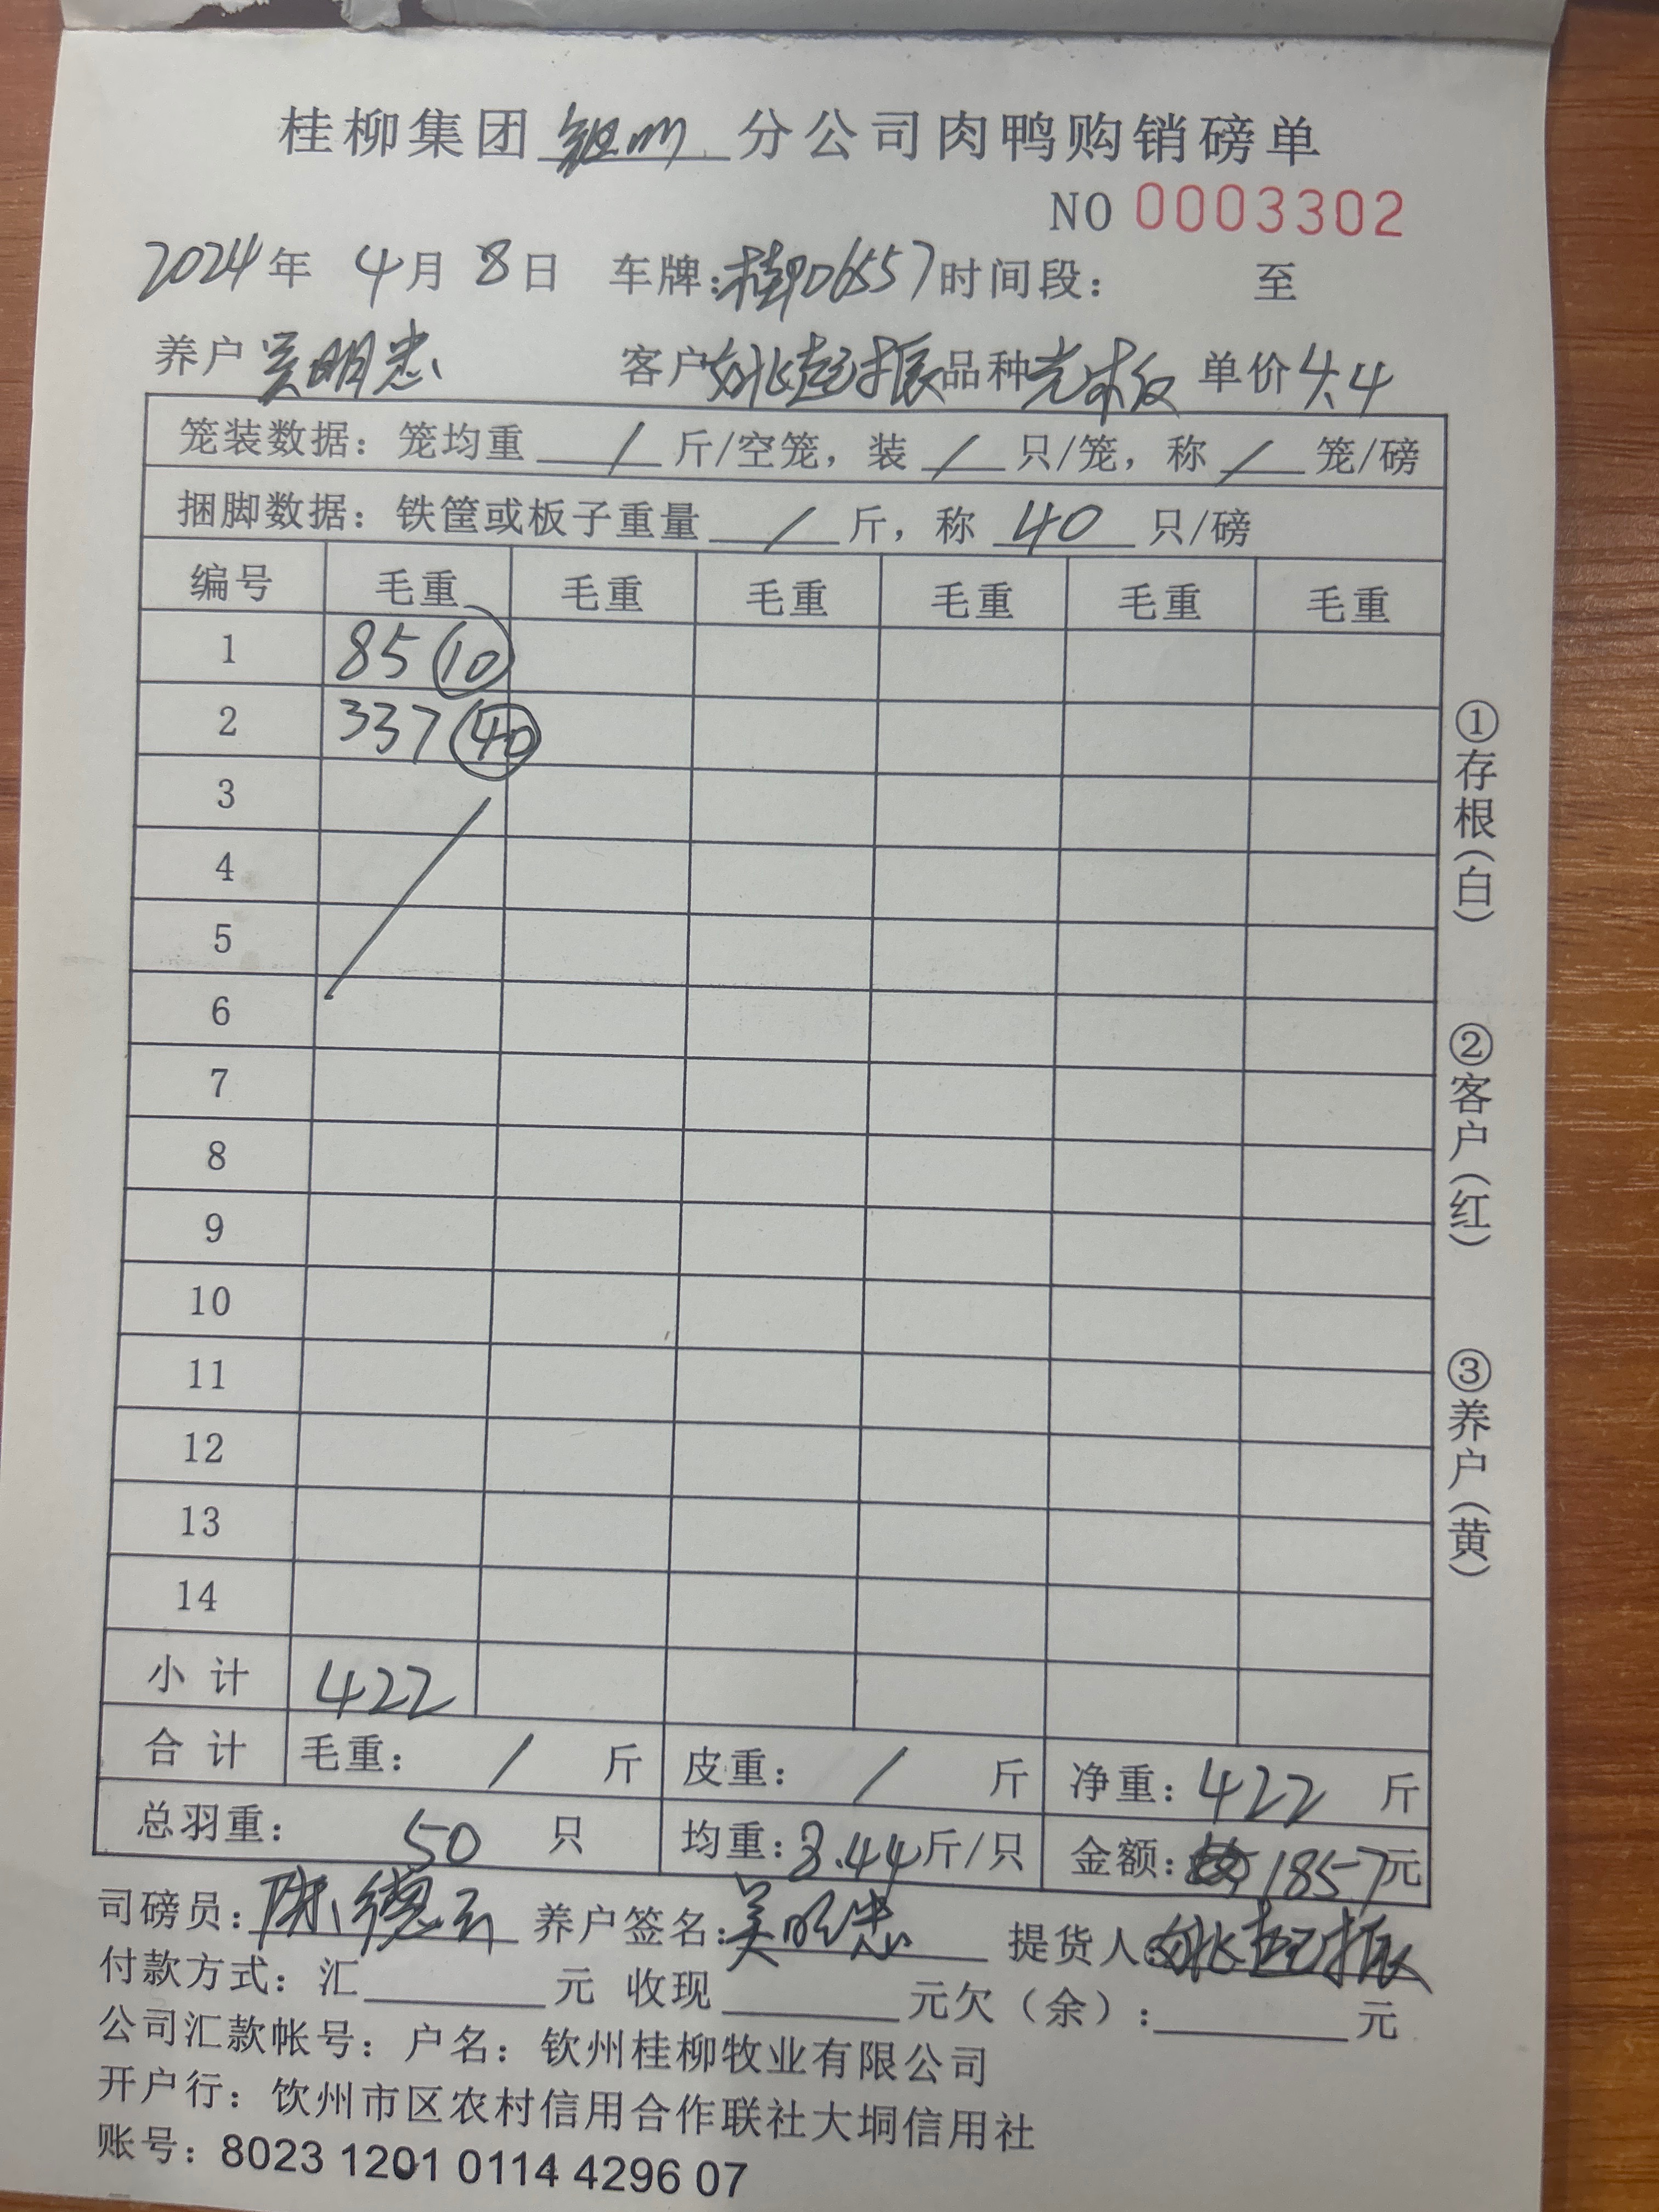 桂柳集团 钦州 分公司肉鸭购销磅单
NO 0003302
2024年 4月 8日 车牌:桂P06557 时间段: 至
养户 吴明忠 客户 姚起振 品种 光木板 单价 4.4
笼装数据:笼均重 / 斤/空笼,装 / 只/笼,称 / 笼/磅
捆脚数据:铁筐或板子重量 / 斤,称 40 只/磅
编号 毛重 毛重 毛重 毛重 毛重 毛重
1 85 (10)
2 337 (40)
3
4
5
6
7
8
9
10
11
12
13
14
小计 422
合计 毛重: / 斤 皮重: / 斤 净重:422 斤
总羽重: 50 只 均重:8.44斤/只 金额:1857元
司磅员:陈德云 养户签名:吴明忠 提货人:姚起振
付款方式:汇 元 收现 元欠(余): 元
公司汇款帐号:户名:钦州桂柳牧业有限公司
开户行:钦州市区农村信用合作联社大垌信用社
账号:8023 1201 0114 4296 07
①存根(白)
②客户(红)
③养户(黄)